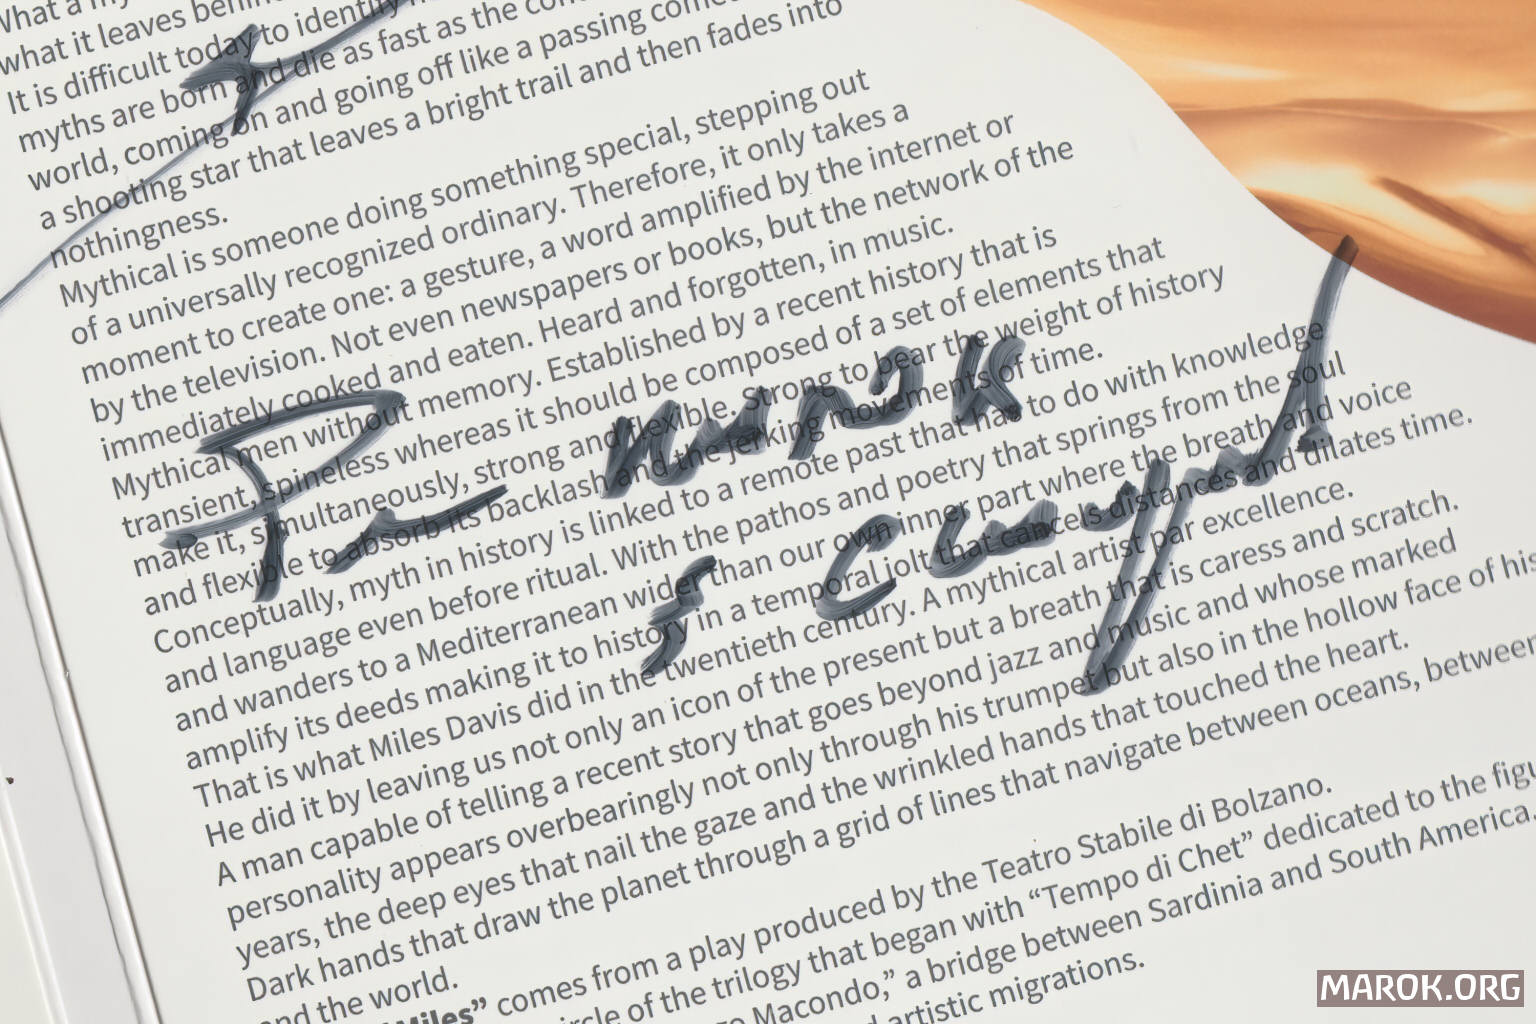 what it leaves behin
It is difficult today to identify
myths are born and die as fast as the con
world, coming on and going off like a passing come
a shooting star that leaves a bright trail and then fades into
nothingness.
Mythical is someone doing something special, stepping out
of a universally recognized ordinary. Therefore, it only takes a
moment to create one: a gesture, a word amplified by the internet or
by the television. Not even newspapers or books, but the network of the
immediately cooked and eaten. Heard and forgotten, in music.
Mythical men without memory. Established by a recent history that is
transient, spineless whereas it should be composed of a set of elements that
make it, simultaneously, strong and flexible. Strong to bear the weight of history
and flexible to absorb its backlash and the jerking movements of time.
Conceptually, myth in history is linked to a remote past that has to do with knowledge
and language even before ritual. With the pathos and poetry that springs from the soul
and wanders to a Mediterranean wider than our own inner part where the breath and voice
amplify its deeds making it to history in a temporal jolt that cancels distances and dilates time.
That is what Miles Davis did in the twentieth century. A mythical artist par excellence.
He did it by leaving us not only an icon of the present but a breath that is caress and scratch.
A man capable of telling a recent story that goes beyond jazz and music and whose marked
personality appears overbearingly not only through his trumpet but also in the hollow face of his
years, the deep eyes that nail the gaze and the wrinkled hands that touched the heart.
Dark hands that draw the planet through a grid of lines that navigate between oceans, between
and the world.
Miles” comes from a play produced by the Teatro Stabile di Bolzano.
ircle of the trilogy that began with “Tempo di Chet” dedicated to the figu
Macondo,” a bridge between Sardinia and South America,
artistic migrations.
MAROK.ORG